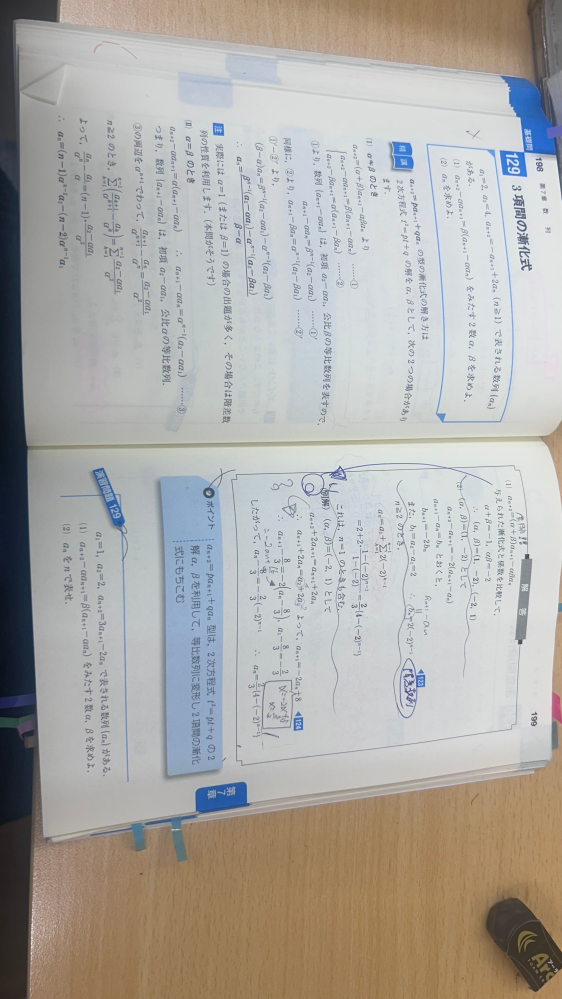 198 第7章 数列
基礎問
129 3項間の漸化式
a₁=2, a₂=4, aₙ₊₂=-aₙ₊₁+2aₙ (n≧1) で表される数列{aₙ}
がある.
(1) aₙ₊₂-αaₙ₊₁=β(aₙ₊₁-αaₙ) をみたす2数α, βを求めよ.
(2) aₙ を求めよ.
精講
aₙ₊₂=paₙ₊₁+qaₙ の型の漸化式の解き方は
2次方程式 t²=pt+q の解をα, βとして, 次の2つの場合があり
ます.
(Ⅰ) α≠β のとき
aₙ₊₂=(α+β)aₙ₊₁-αβaₙ より
aₙ₊₂-αaₙ₊₁=β(aₙ₊₁-αaₙ) ……①
aₙ₊₂-βaₙ₊₁=α(aₙ₊₁-βaₙ) ……②
①より, 数列{aₙ₊₁-αaₙ}は, 初項 a₂-αa₁, 公比βの等比数列を表すので,
aₙ₊₁-αaₙ=βⁿ⁻¹(a₂-αa₁) ……①′
同様に, ②より, aₙ₊₁-βaₙ=αⁿ⁻¹(a₂-βa₁) ……②′
①′-②′より,
(β-α)aₙ=βⁿ⁻¹(a₂-αa₁)-αⁿ⁻¹(a₂-βa₁)
∴ aₙ=(βⁿ⁻¹(a₂-αa₁)-αⁿ⁻¹(a₂-βa₁))/(β-α)
注 実際には α=1 (または β=1) の場合の出題が多く, その場合は階差数
列の性質を利用します. (本問がそうです)
(Ⅱ) α=β のとき
aₙ₊₂-αaₙ₊₁=α(aₙ₊₁-αaₙ) ∴ aₙ₊₁-αaₙ=αⁿ⁻¹(a₂-αa₁) ……③
つまり, 数列{aₙ₊₁-αaₙ}は, 初項 a₂-αa₁, 公比αの等比数列.
③の両辺を αⁿ⁺¹ でわって, aₙ₊₁/αⁿ⁺¹-aₙ/αⁿ=(a₂-αa₁)/α²
n≧2 のとき,
よって, aₙ/αⁿ-a₁/α=(n-1)・(a₂-αa₁)/α²
∴ aₙ=(n-1)αⁿ⁻²a₂-(n-2)αⁿ⁻¹a₁
199
解答
(1) aₙ₊₂=(α+β)aₙ₊₁-αβaₙ
与えられた漸化式と係数を比較して,
α+β=-1, αβ=-2
∴ (α, β)=(1, -2), (-2, 1)
(2) (α, β)=(1, -2) として
aₙ₊₂-aₙ₊₁=-2(aₙ₊₁-aₙ)
aₙ₊₁-aₙ=bₙ とおくと,
bₙ₊₁=-2bₙ
また, b₁=a₂-a₁=2 ∴ bₙ=2(-2)ⁿ⁻¹
n≧2 のとき,
123
階差数列
=2+2・(1-(-2)ⁿ⁻¹)/(1-(-2))=2/3(4-(-2)ⁿ⁻¹)
これは, n=1 のときも含む.
(別解) (α, β)=(-2, 1) として
aₙ₊₂+2aₙ₊₁=aₙ₊₁+2aₙ
∴ aₙ₊₁+2aₙ=a₂+2a₁ よって, aₙ₊₁=-2aₙ+8
∴ aₙ₊₁-8/3=-2(aₙ-8/3), a₁-8/3=-2/3
124
したがって, aₙ-8/3=-2/3(-2)ⁿ⁻¹ ∴ aₙ=2/3(4-(-2)ⁿ⁻¹)
ポイント: aₙ₊₂=paₙ₊₁+qaₙ 型は, 2次方程式 t²=pt+q の2
解α, βを利用して, 等比数列に変形し2項間の漸化
式にもちこむ
第7章
演習問題 129
a₁=1, a₂=2, aₙ₊₂=3aₙ₊₁-2aₙ で表される数列{aₙ}がある.
(1) aₙ₊₂-αaₙ₊₁=β(aₙ₊₁-αaₙ) をみたす2数α, βを求めよ.
(2) aₙ をnで表せ.